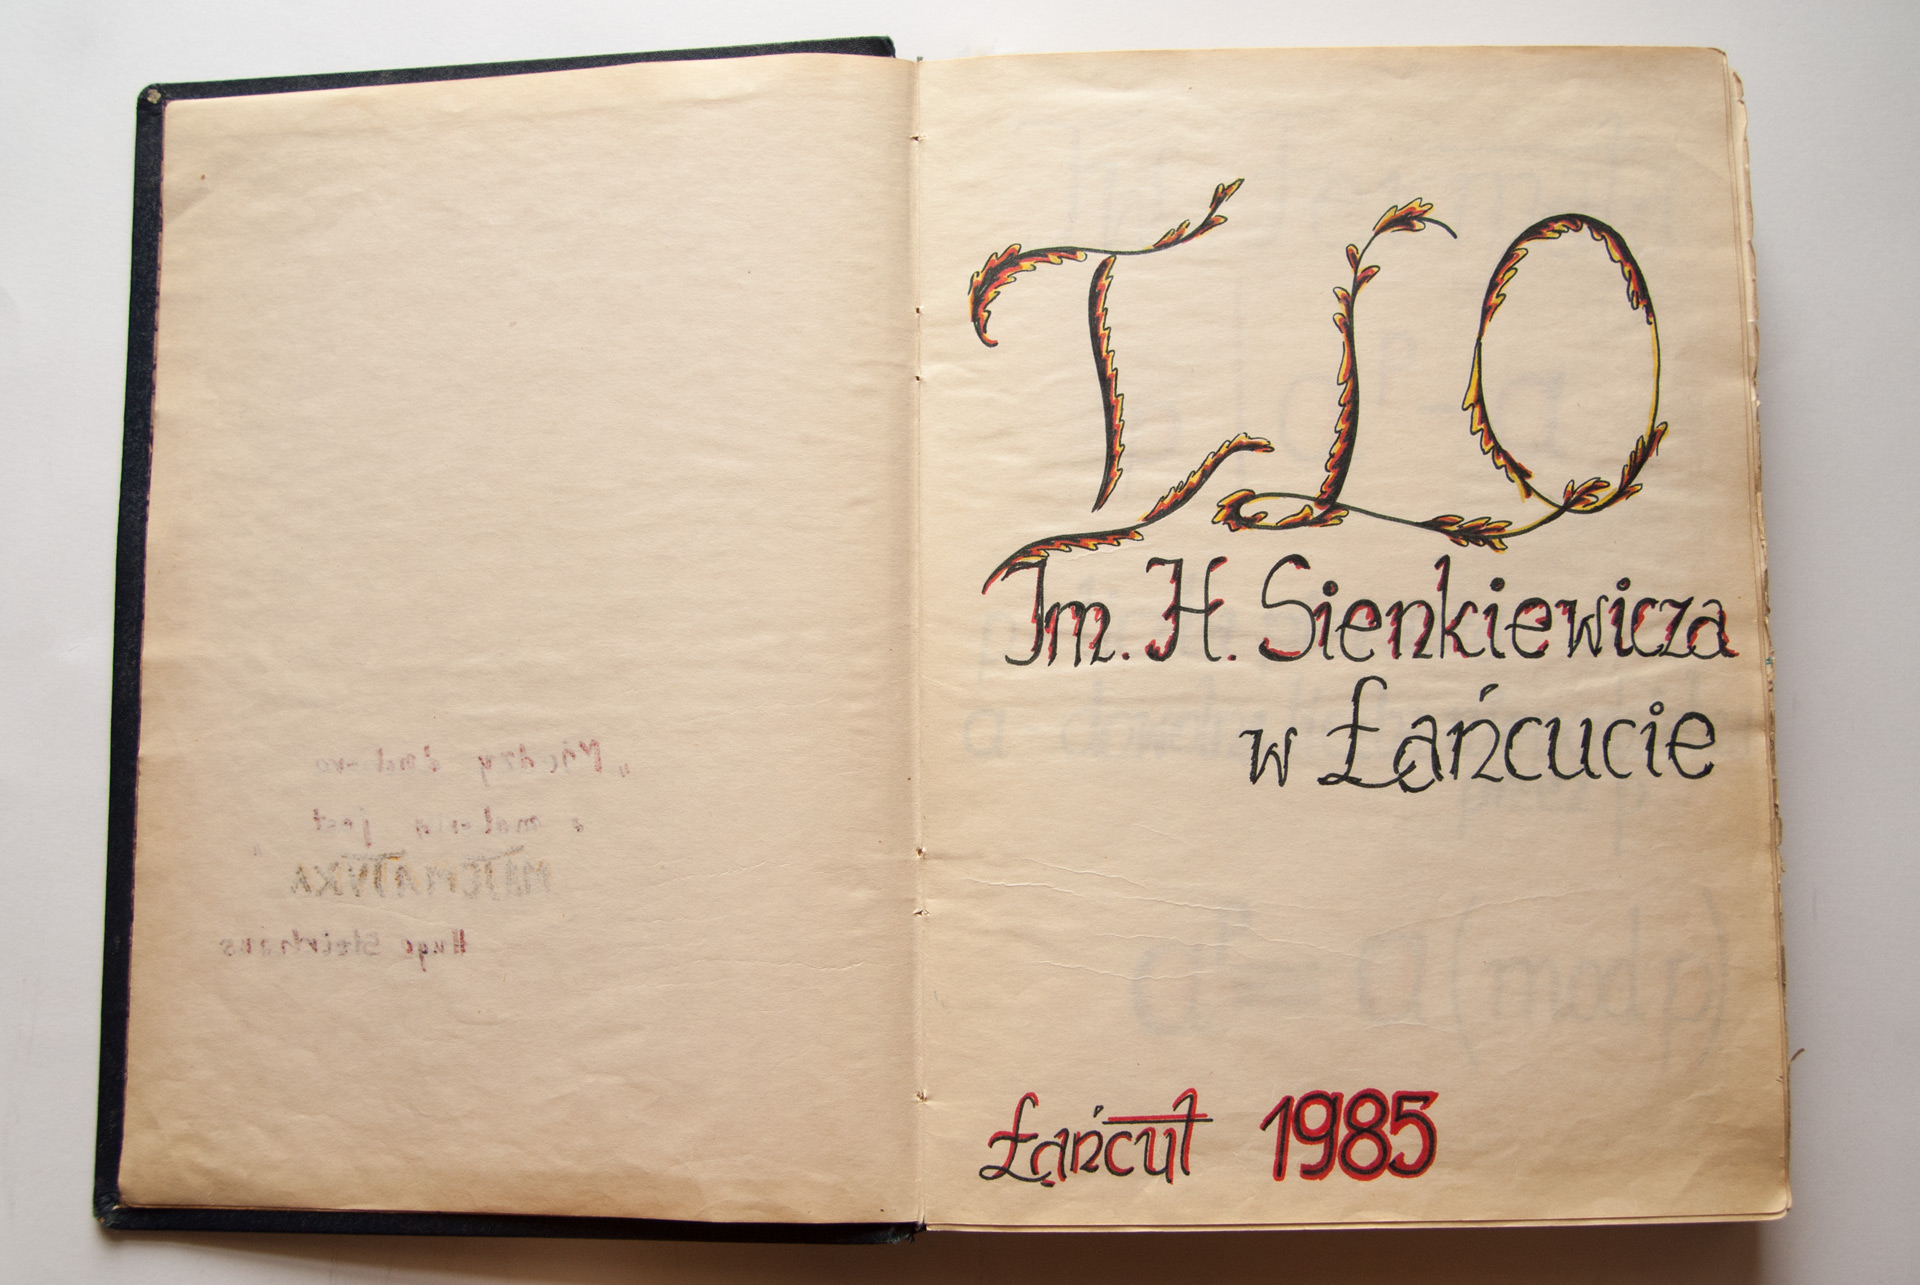 „Między
jest
MATEMATYKA
Hugo Steinhaus
I LO
Im. H. Sienkiewicza
w Łańcucie
Łańcut 1985